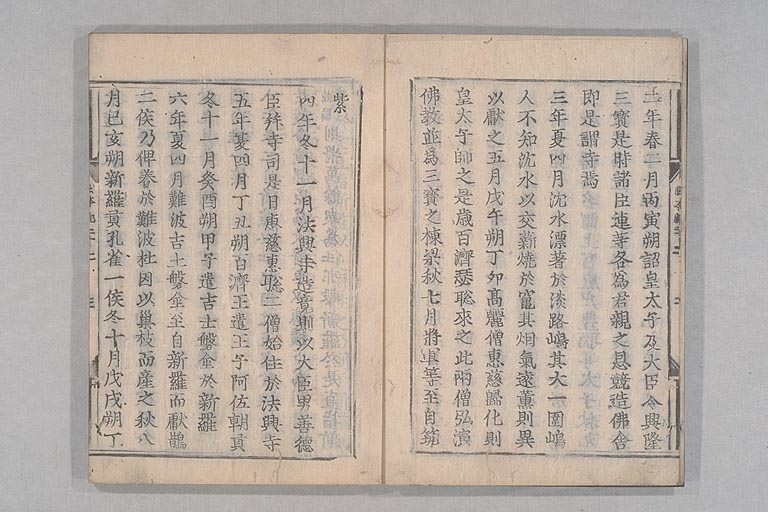 二年春二月丙寅朔詔皇太子及大臣令興隆
三寳是時諸臣連等各為君親之恩競造佛舎
即是謂寺焉
三年夏四月沈水漂著於淡路嶋其大一圍嶋
人不知沈水以交薪焼於竈其烟氣遠薫則異
以獻之五月戊午朔丁卯髙麗僧惠慈歸化則
皇太子師之是歳百濟僧惠聡來之此兩僧弘演
佛教並為三寳之棟梁秋七月將軍等至自筑
紫
四年冬十一月法興寺造竟則以大臣男善德
臣拜寺司是日惠慈惠聡二僧始住於法興寺
五年夏四月丁丑朔百濟王遣王子阿佐朝貢
冬十一月癸酉朔甲子遣吉士磐金於新羅
六年夏四月難波吉士磐金至自新羅而獻鵲
二俟乃俾養於難波杜因以巢枝而産之秋八
月己亥朔新羅貢孔雀一俟冬十月戊戌朔丁